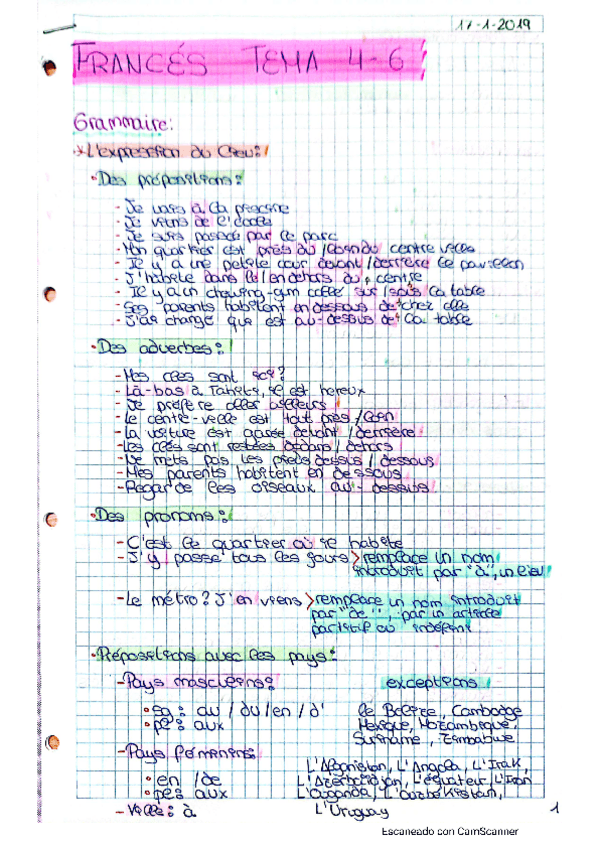 17-1-2019
FRANCÉS TEMA 4-6
Grammaire:
L'expression du lieu:
• Des prépositions:
- Je vais à la piscine
- Je viens de l'école
- Je suis passée par le parc
- Mon quartier est près du /loin du centre ville
- Il y a une petite cour devant /derrière le pavillon
- J'habite dans le /en dehors du centre
- Il y a un chewing-gum collé sur /sous la table
- Ses parents habitent en dessous de chez elle
- J'ai changé que est au-dessus de la table
• Des adverbes:
- Mes clés sont ici?
- Là-bas à Tahiti, il est hereux
- Je préfère aller ailleurs
- Le centre-ville est tout près /loin
- La voiture est garée devant /derrière
- Les clés sont restées dedans / dehors
- Je mets tous les pieds dessus / dessous
- Mes parents habitent en dessous
- Regarde les oiseaux au-dessus
• Des pronoms:
- C'est le quartier où je habite
- J'y passe tous les jours > remplace un nom
introduit par "à", un lieu
- Le métro? J'en viens > remplace un nom introduit
par "de", par un article
partitif ou indéfini
• Prépositions avec les pays:
- Pays masculins: exceptions
• sg: au / du /en / d' le Belize, Cambodge
• pl: aux Mexique, Mozambique,
Suriname, Zimbabwe
- Pays féminins:
L'Afganistan, L'Angola, L'Irak,
• en /de L'Azerbaidjan, L'équateur, L'Iran
• pl: aux L'Ouganda, L'Ouzbékistan,
- Ville: à L'Uruguay
1
Escaneado con CamScanner